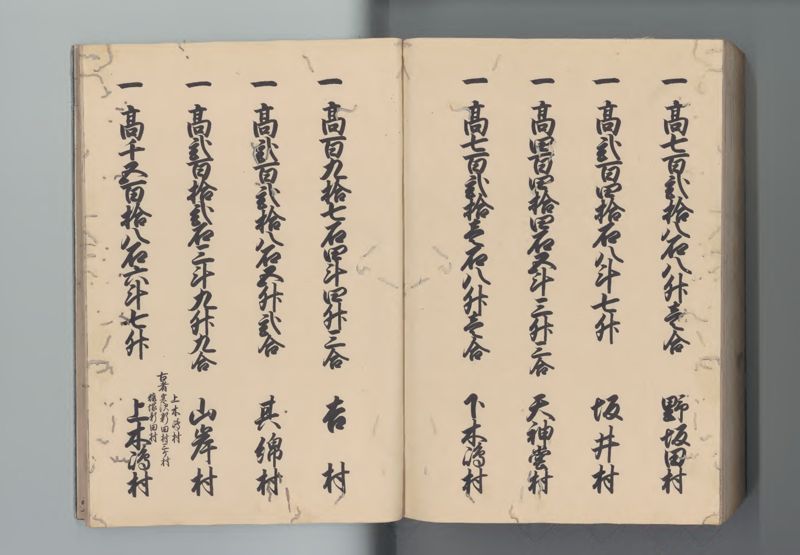 一 高七百弐拾八石八升壱合 野坂田村
一 高弐百四拾石八斗七升 坂井村
一 高四百四拾四石五斗三升三合 天神堂村
一 高七百弐拾壱石八升壱合 下木嶋村
一 高百九拾七石四斗四升三合 吉村
一 高弐百弐拾八石五升弐合 真綿村
一 高弐百拾弐石三斗九升九合 山岸村
一 高千五百拾八石六斗七升 上木嶋村
古者
上木嶋村
新田村三ケ村
新田村